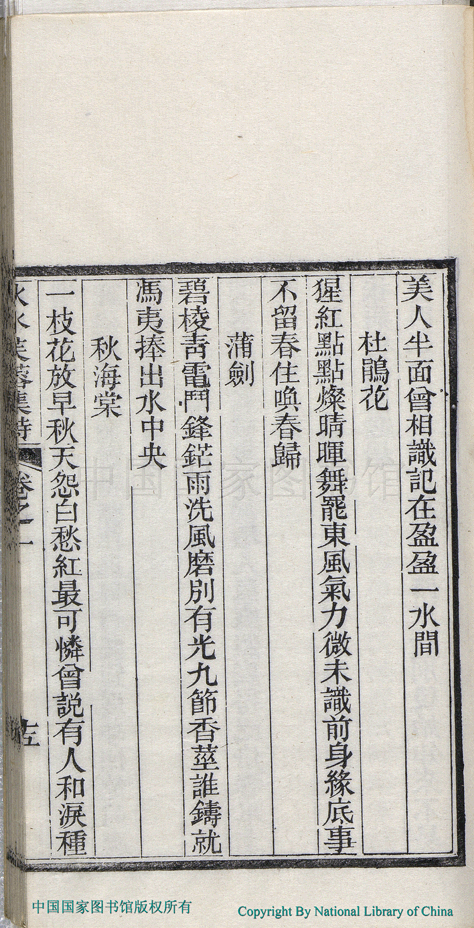 美人半面曾相識記在盈盈一水間
杜鵑花
猩紅點點燦晴暉舞罷東風氣力微未識前身緣底事
不留春住喚春歸
蒲劍
碧棱青電鬥鋒鋩雨洗風磨別有光九節香莖誰鑄就
馮夷捧出水中央
秋海棠
一枝花放早秋天怨白愁紅最可憐曾説有人和淚種
秋水芙蓉集詩 卷之一
中国国家图书馆
中国国家图书馆版权所有
Copyright By National Library of China